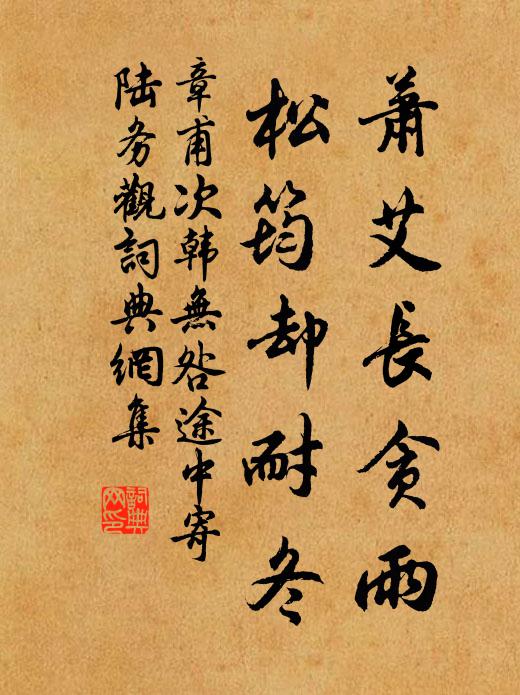 蕭艾長貪雨
松筠却耐冬
章甫次韩無咎途中寄
陆务觀詞典網集
詞典
网印